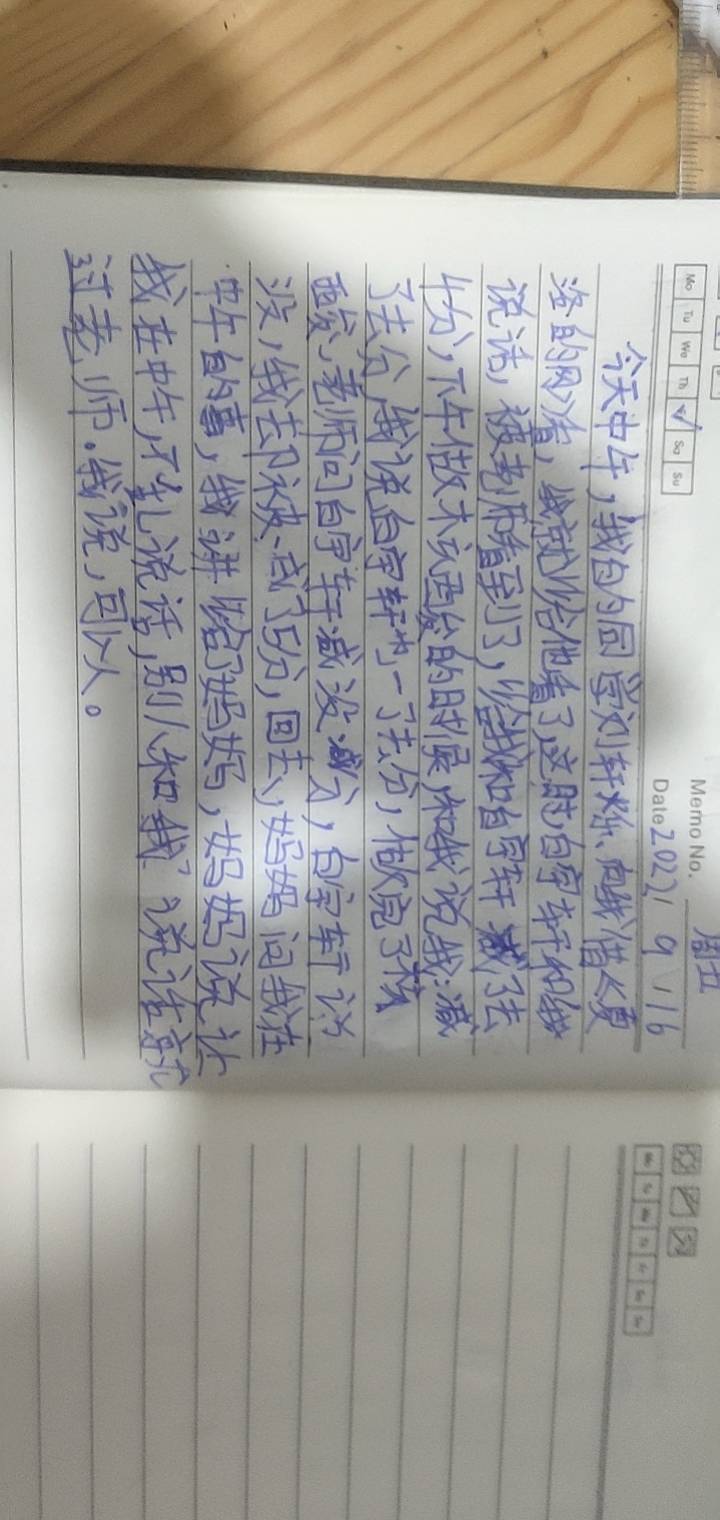 Memo No.
周五
Mo Tu We Th Sa Su
Date 2022 / 9 / 16
今天中午,我的同学刘轩烁、向我借《夏
洛的网》看,我就给他看了这时,白宇轩和我
说话,被老师看到了,给我和白宇轩减了去
分,下午做木的时候,和我说我:减
了去分,我说白宇轩也一了去分,做完了核
酸,老师问白宇轩减没减分,白宇轩说
没,我却被减了5分,回去,妈妈问我在
中午的事,我讲给了妈妈,妈妈说让
我在中午,不乱说话,别人和我说话就
过老师。我说,可以。